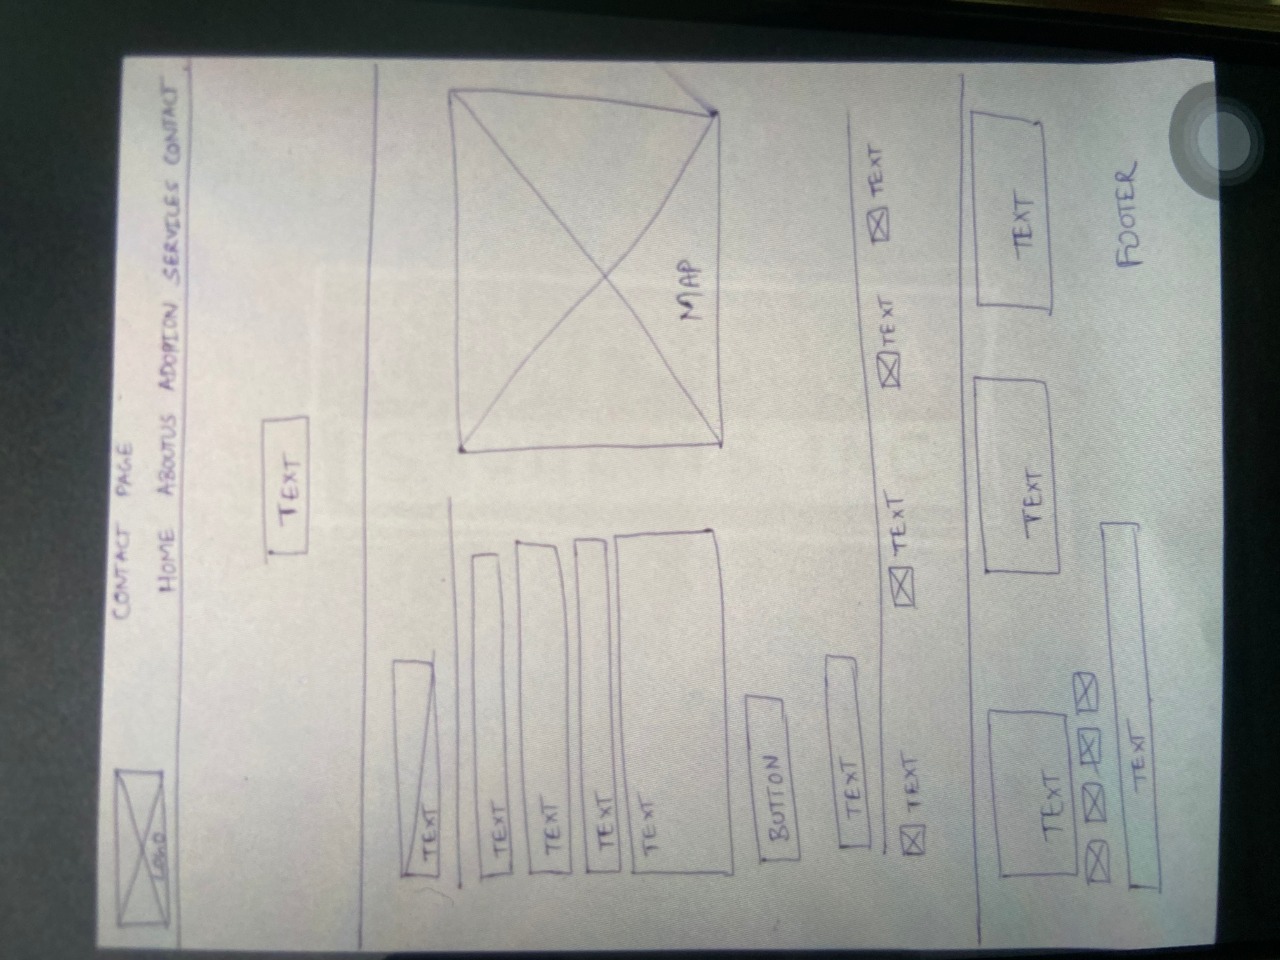 CONTACT PAGE
LOGO
HOME ABOUTUS ADOPION SERVICES CONTACT
TEXT
TEXT
TEXT
TEXT
TEXT
TEXT
MAP
BUTTON
TEXT
TEXT TEXT TEXT TEXT
TEXT TEXT TEXT
TEXT
FOOTER